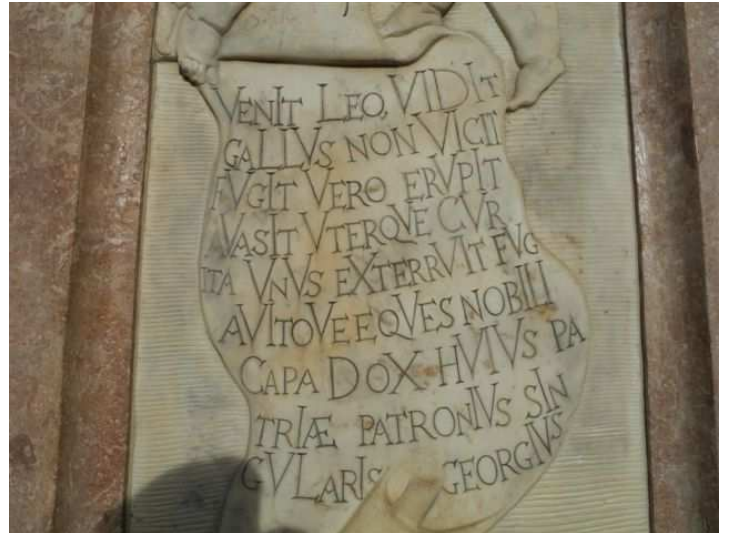 VENIT LEO, VIDIT
GALLVS NON VICTI
FVGIT VERO ERVPIT
AVASIT VTERQVE CVR
ITA VNVS EXTERRVIT FVG
AVITOVE EQVES NOBILI
CAPADOX HVIVS PA
TRIÆ PATRONIVS SIN
GVLARIS GEORGIVS